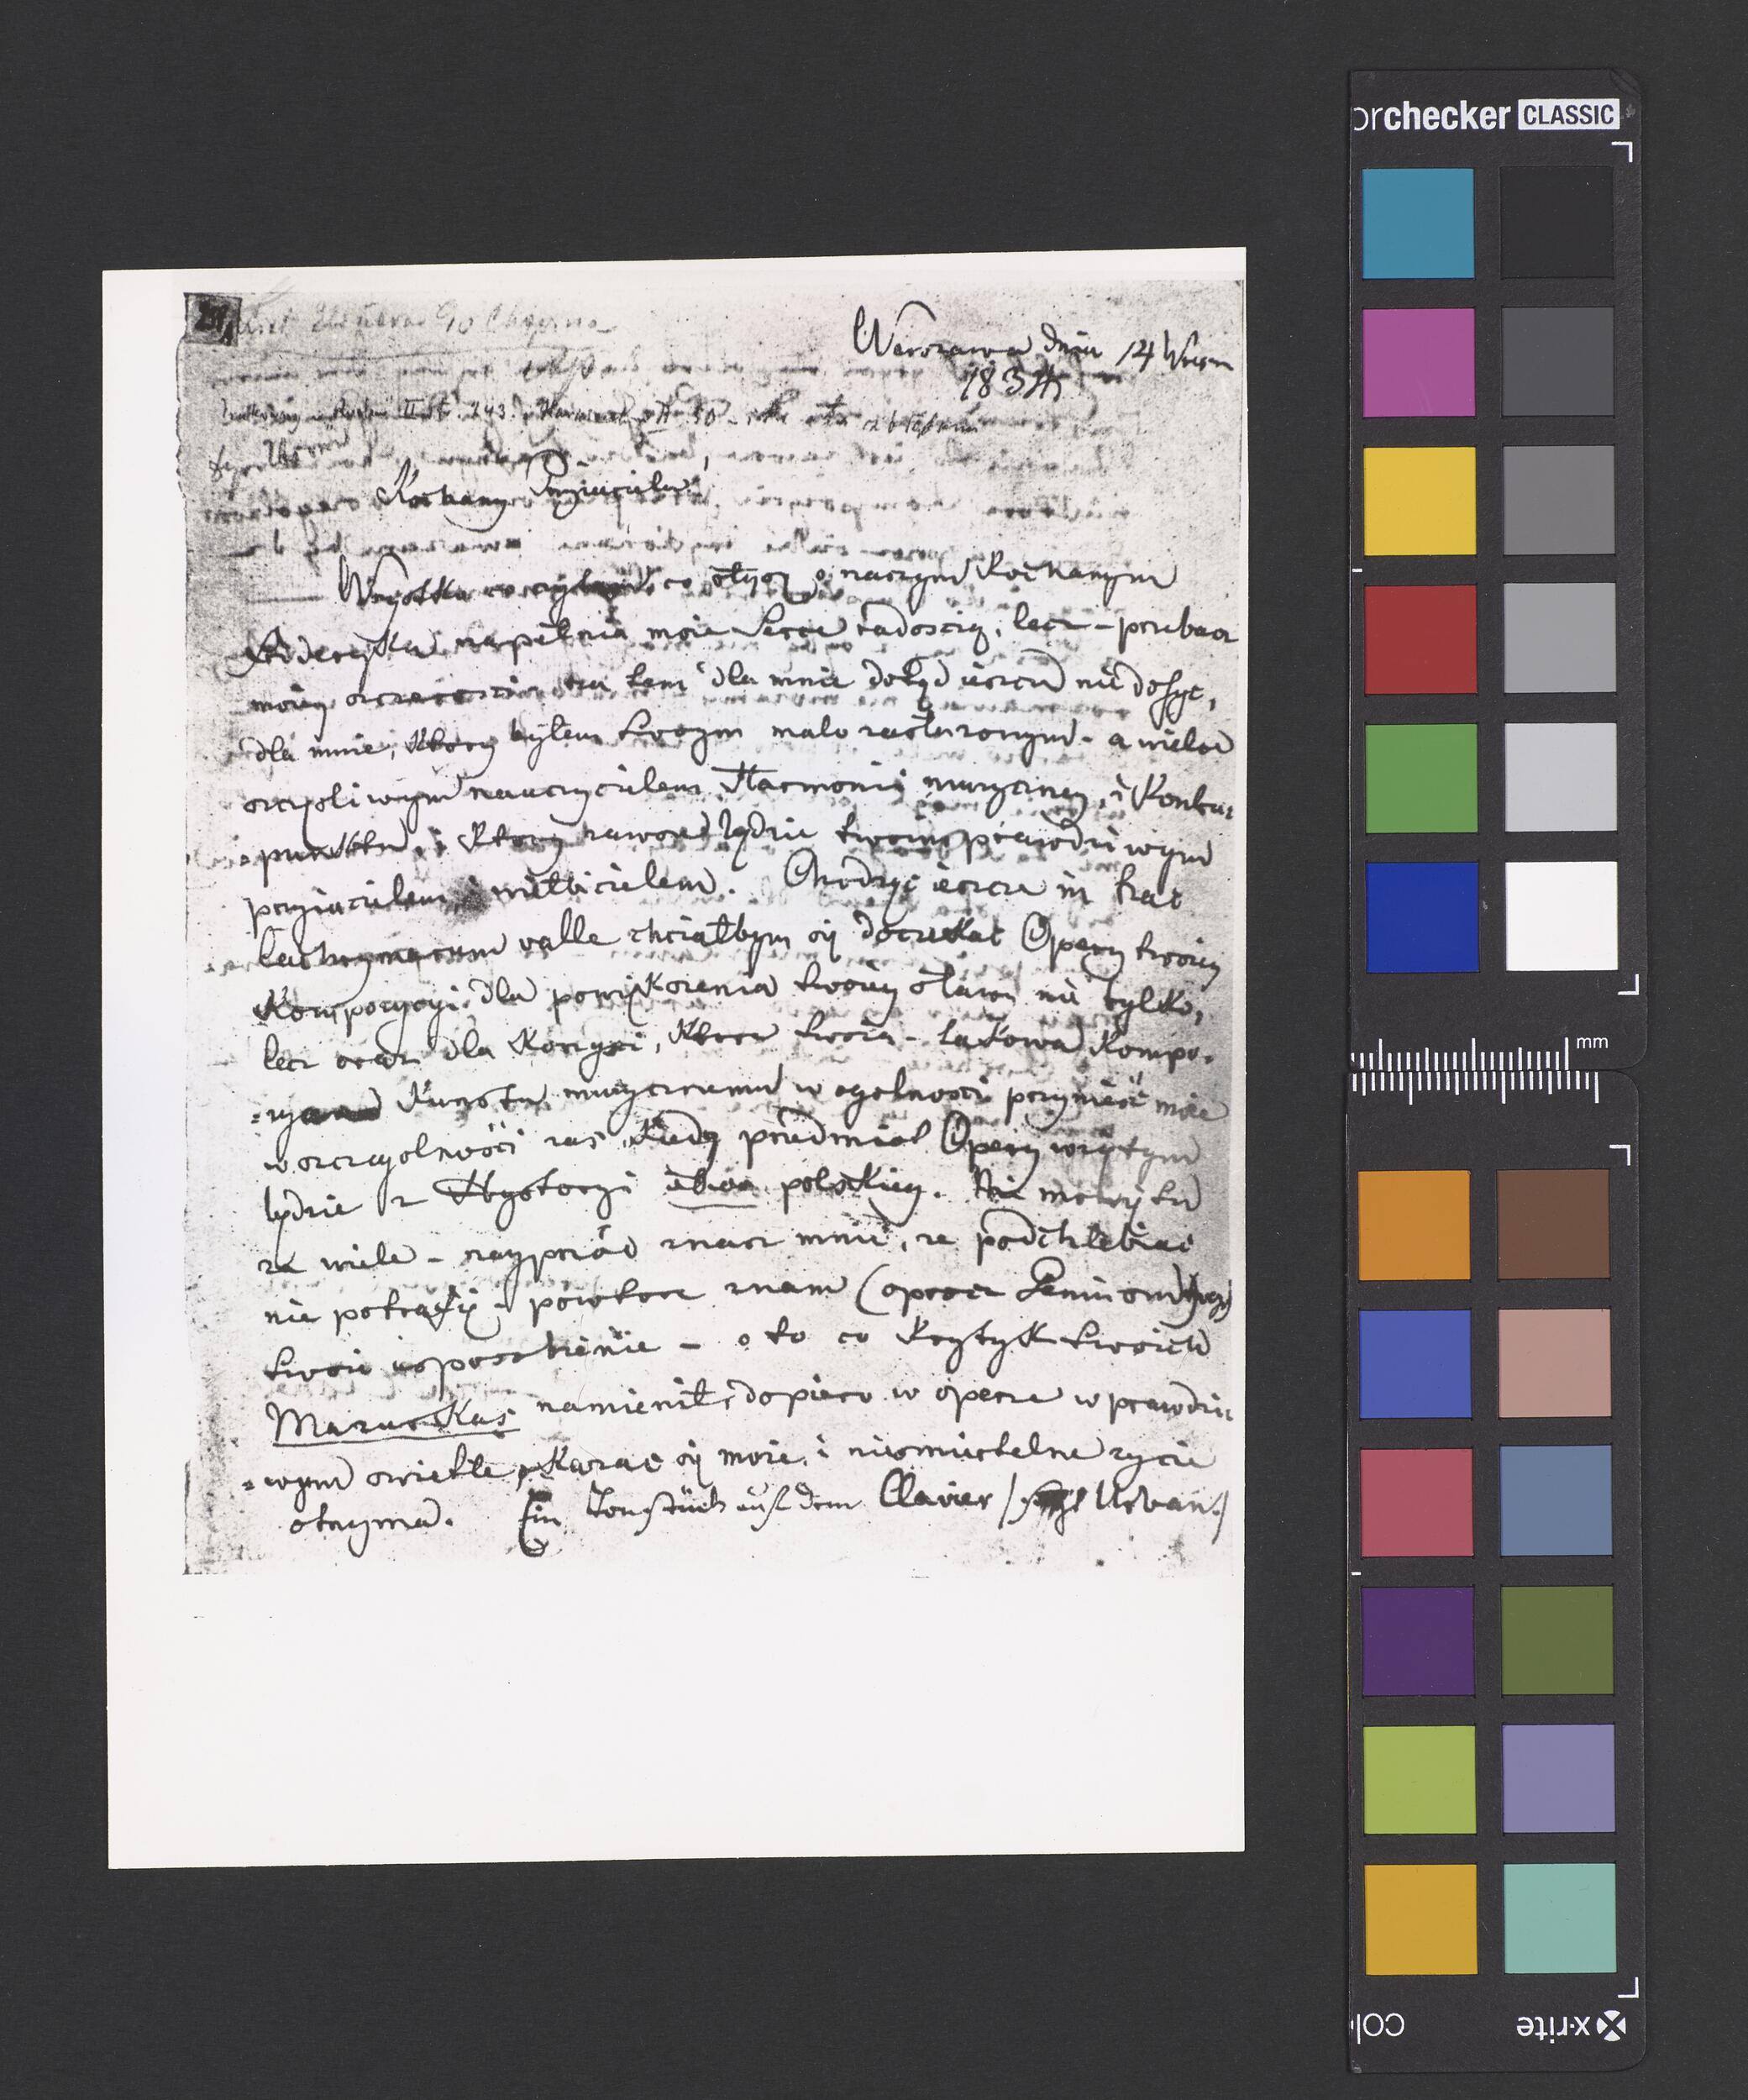 List Elsnera do Chopina
Warszawa dnia 14 Wrześn
1834
Kochany Przyjacielu!
Wszystko co czytam, co słyszę o naszym kochanym
Frideryku napełnia moie serce radością, lecz - przebacz
moiey szczerości tu tem dla mnie dotąd ieszcze nie dosyc,
dla mnie, ktory byłem twoym malo zasłużonym - a wielce
szczęsliwym nauczycielem Harmonii muzyczney, i Kontra
=punktu, i ktory zawsze będzie twoim prawdziwym
przyiacielem i wielbicielem. Chodząc ieszcze in hac
lachrymarum valle chciałbym się doczekac Opery twoiey
Kompozycyi. dla powiększenia twoiey sławy nie tylko,
lecz oraz dla Korzysci, ktore twoia - takowa Kompo=
=zycya Kunsztu muzycznemu w ogolnosci przynieść może
w szczegolności zaś kiedy przedmiot Opery wziętym
będzie z Hystoryi polskiey. Nie mowię tu
za wiele - nayprzód znasz mnie, że podchlebiac
nie potrafię - powtore znam (oprocz Geniuszu)
twoie usposobienie - o to co Krytyk twoich
Mazurkas namienił, dopiero w operze w prawdzi
=wym swietle, okazac się może, i niesmiertelne życie
otrzyma. Ein Tonstück auf dem Clavier / Urban/